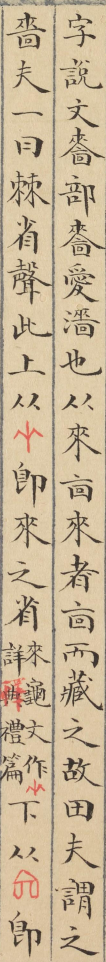 字說文嗇部嗇愛濇也从來㐭來者㐭而藏之故田夫謂之
嗇夫一曰棘省聲此上从即來之省
來龜文作
詳禮篇
下从即